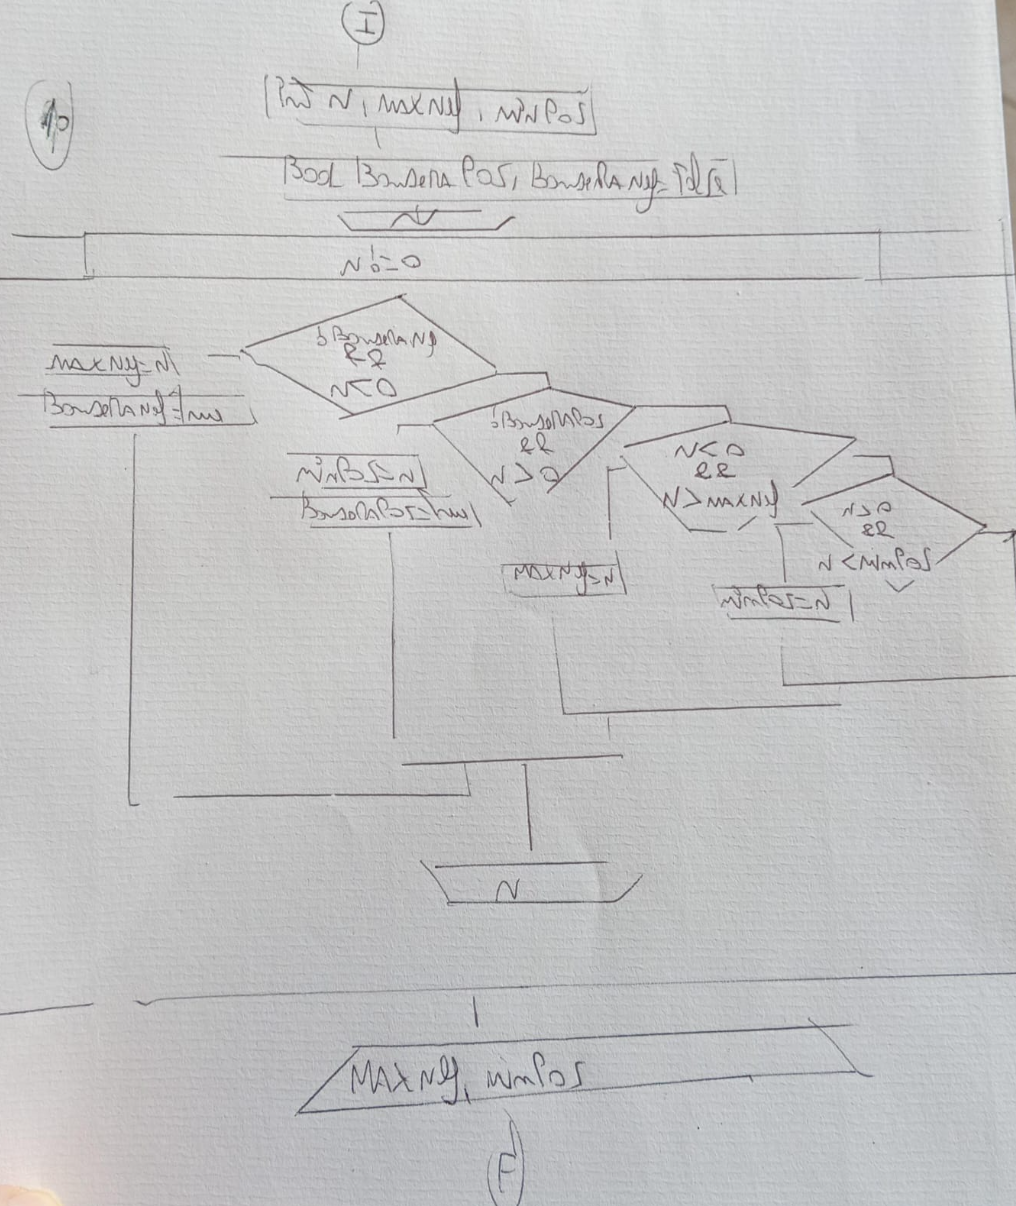 I
10
int N, MAXNeg, MINPOS
Bool BANDERAPOS, BANDERANeg=False
N
N!=0
!BANDERANeg
&&
N<0
MAXNeg=N
BANDERANeg=True
!BANDERAPOS
&&
N>0
MINPOS=N
BANDERAPOS=true
N<0
&&
N>MAXNeg
MAXNeg=N
N>0
&&
N<MINPOS
MINPOS=N
N
MAXNeg, MINPOS
F